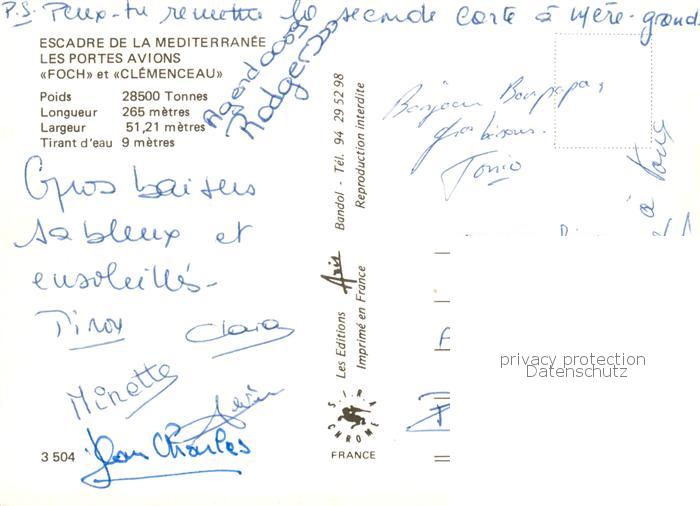 P.S. Peux-tu remettre la seconde carte à Mère-grand.
ESCADRE DE LA MEDITERRANÉE
LES PORTES AVIONS
«FOCH» et «CLÉMENCEAU»
Poids 28500 Tonnes
Longueur 265 mètres
Largeur 51,21 mètres
Tirant d'eau 9 mètres
Gros baisers
sableux et
ensoleillés-
Clara
Minette
Jean Charles
3 504
Les Editions Bandol - Tél. 94 29 52 98
Imprimé en France Reproduction interdite
SIRA
CHROME
FRANCE
Bonjour Bonpapa,
Gros bisous.
Tonio
à
privacy protection
Datenschutz